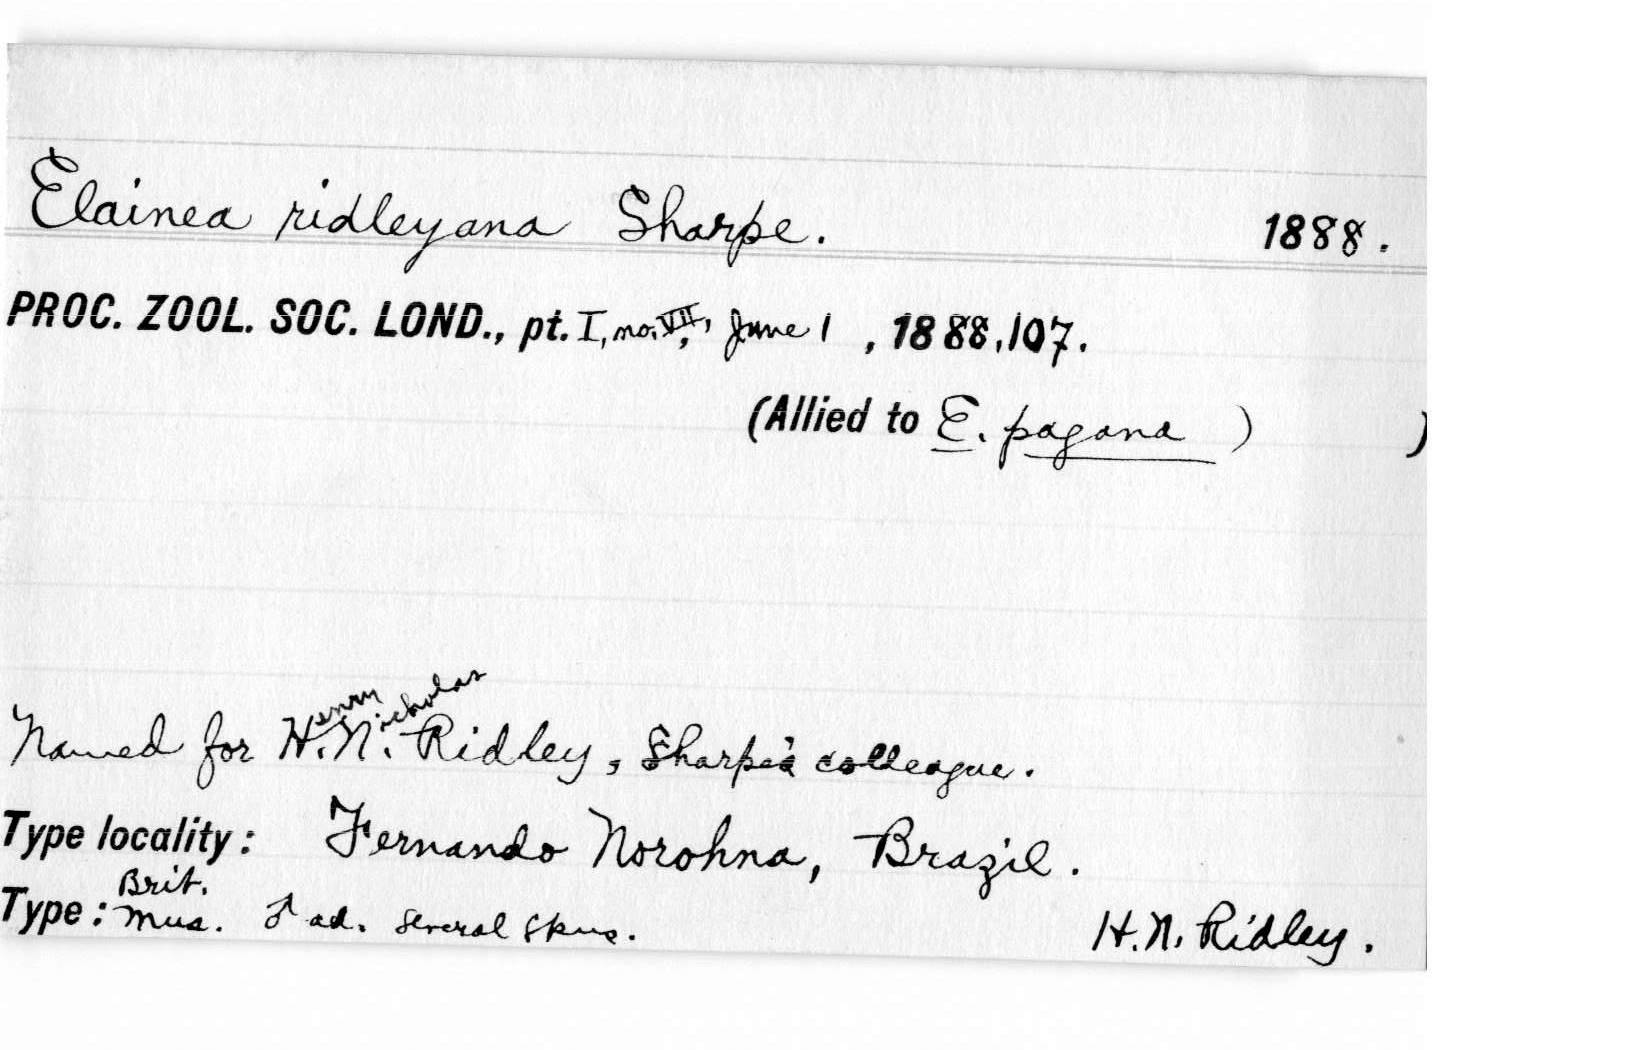 Elainea ridleyana Sharpe. 1888.
PROC. ZOOL. SOC. LOND., pt. I, no. VII, June 1, 1888, 107.
(Allied to E. pagana ) )
Henry Nicholas
Named for H. N. Ridley, Sharpe's colleague.
Type locality: Fernando Norohna, Brazil.
Brit.
Type: Mus. ♂ ad. several skns. H. N. Ridley.